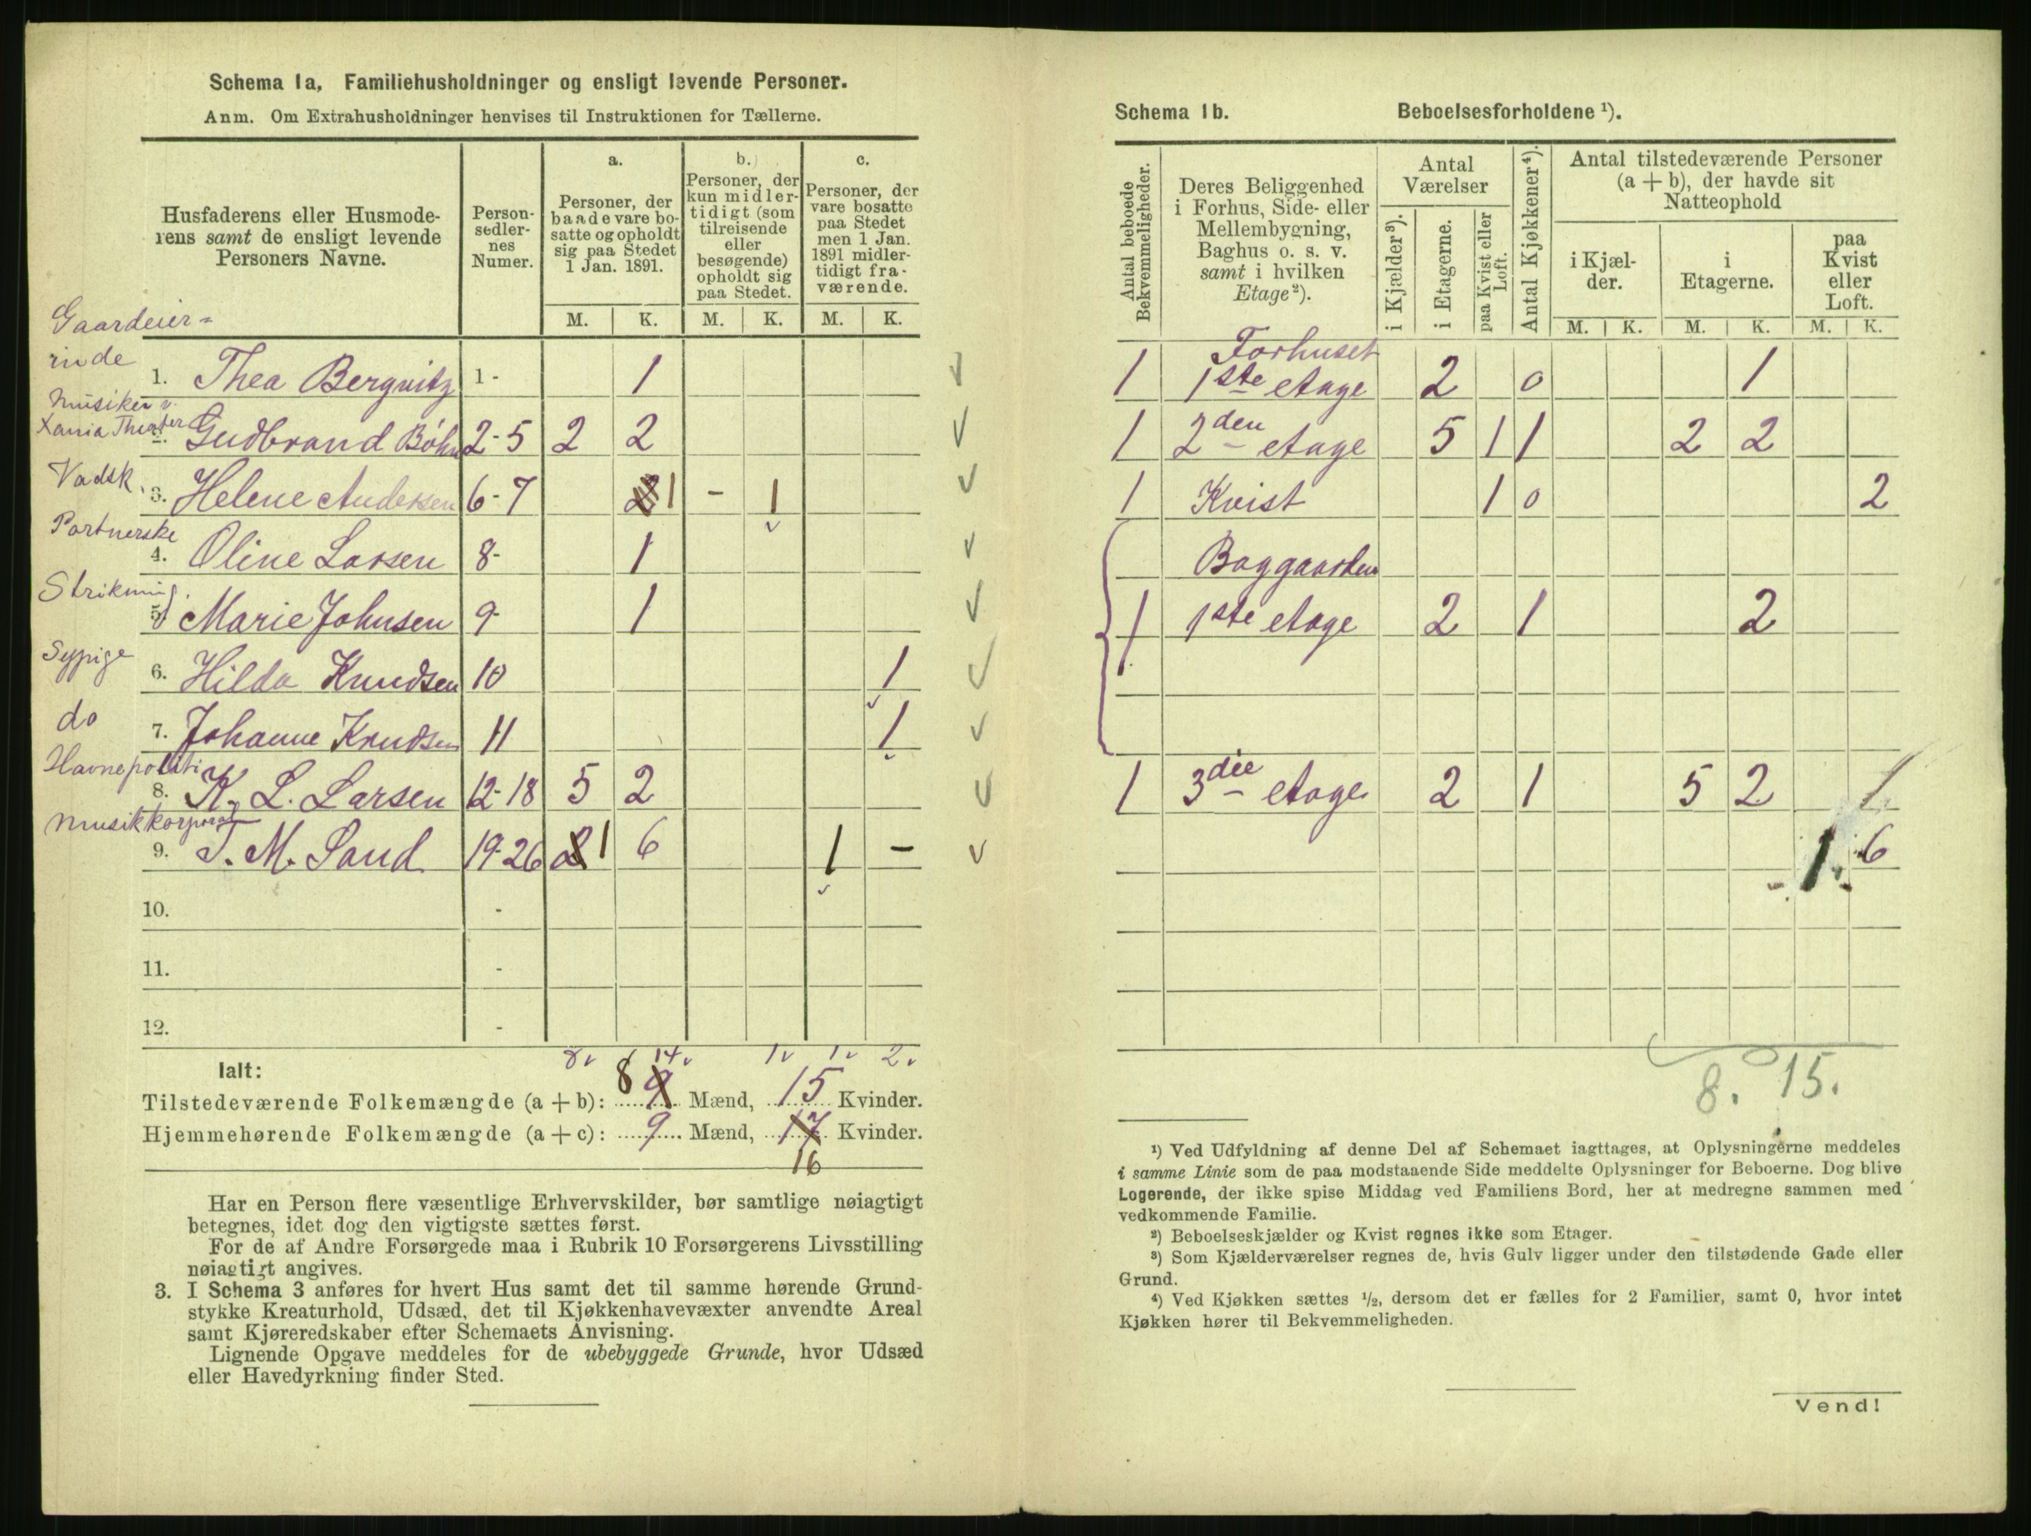 Schema 1a. Familiehusholdninger og ensligt levende Personer.
Anm. Om Extrahusholdninger henvises til Instruktionen for Tællerne.
Husfaderens eller Husmoderens samt de ensligt levende Personers Navne.
Personsedlernes Numer.
a. Personer, der baade vare bosatte og opholdt sig paa Stedet 1 Jan. 1891.
b. Personer, der kun midlertidigt (som tilreisende eller besøgende) opholdt sig paa Stedet.
c. Personer, der vare bosatte paa Stedet men 1 Jan. 1891 midlertidigt fraværende.
M. K. M. K. M. K.
Gaardeier=
rinde
1. Thea Bergwitz 1- 1
Musiker v.
Xania Theater
2. Gudbrand Bøhn 2-5 2 2
Vadsk.
3. Helene Andersen 6-7 2 1 - 1
Portnerske
4. Oline Larsen 8- 1
Strikning.
5. Marie Johnsen 9- 1
Sypige
6. Hilda Knudsen 10 1
do
7. Johanne Knudsen 11 1
Havnepoliti
8. K. L. Larsen 12-18 5 2
Musikkorporal
9. T. M. Sand 19-26 2 1 6 1 -
10. -
11. -
12. -
8 14 1 1 2
Ialt:
Tilstedeværende Folkemængde (a + b): 8 9 Mænd, 15 Kvinder.
Hjemmehørende Folkemængde (a + c): 9 Mænd, 17 Kvinder.
16
Har en Person flere væsentlige Erhvervskilder, bør samtlige nøiagtigt
betegnes, idet dog den vigtigste sættes først.
For de af Andre Forsørgede maa i Rubrik 10 Forsørgerens Livsstilling
nøiagtigt angives.
3. I Schema 3 anføres for hvert Hus samt det til samme hørende Grund-
stykke Kreaturhold, Udsæd, det til Kjøkkenhavevæxter anvendte Areal
samt Kjøreredskaber efter Schemaets Anvisning.
Lignende Opgave meddeles for de ubebyggede Grunde, hvor Udsæd
eller Havedyrkning finder Sted.
Schema 1b. Beboelsesforholdene ¹).
Antal beboede Bekvemmeligheder.
Deres Beliggenhed i Forhus, Side- eller Mellembygning, Baghus o. s. v. samt i hvilken Etage²).
Antal Værelser
i Kjælder³).
i Etagerne.
paa Kvist eller Loft.
Antal Kjøkkener⁴).
Antal tilstedeværende Personer (a + b), der havde sit Natteophold
i Kjælder.
i Etagerne.
paa Kvist eller Loft.
M. K. M. K. M. K.
Forhuset
1 1ste etage 2 0 1
1 2den etage 5 1 1 2 2
1 Kvist 1 0 2
Baggaarden
1 1ste etage 2 1 2
1 3die etage 2 1 5 2 1
1 6
8. 15.
¹) Ved Udfyldning af denne Del af Schemaet iagttages, at Oplysningerne meddeles
i samme Linie som de paa modstaaende Side meddelte Oplysninger for Beboerne. Dog blive
Logerende, der ikke spise Middag ved Familiens Bord, her at medregne sammen med
vedkommende Familie.
²) Beboelseskjælder og Kvist regnes ikke som Etager.
³) Som Kjælderværelser regnes de, hvis Gulv ligger under den tilstødende Gade eller
Grund.
⁴) Ved Kjøkken sættes ½, dersom det er fælles for 2 Familier, samt 0, hvor intet
Kjøkken hører til Bekvemmeligheden.
Vend!